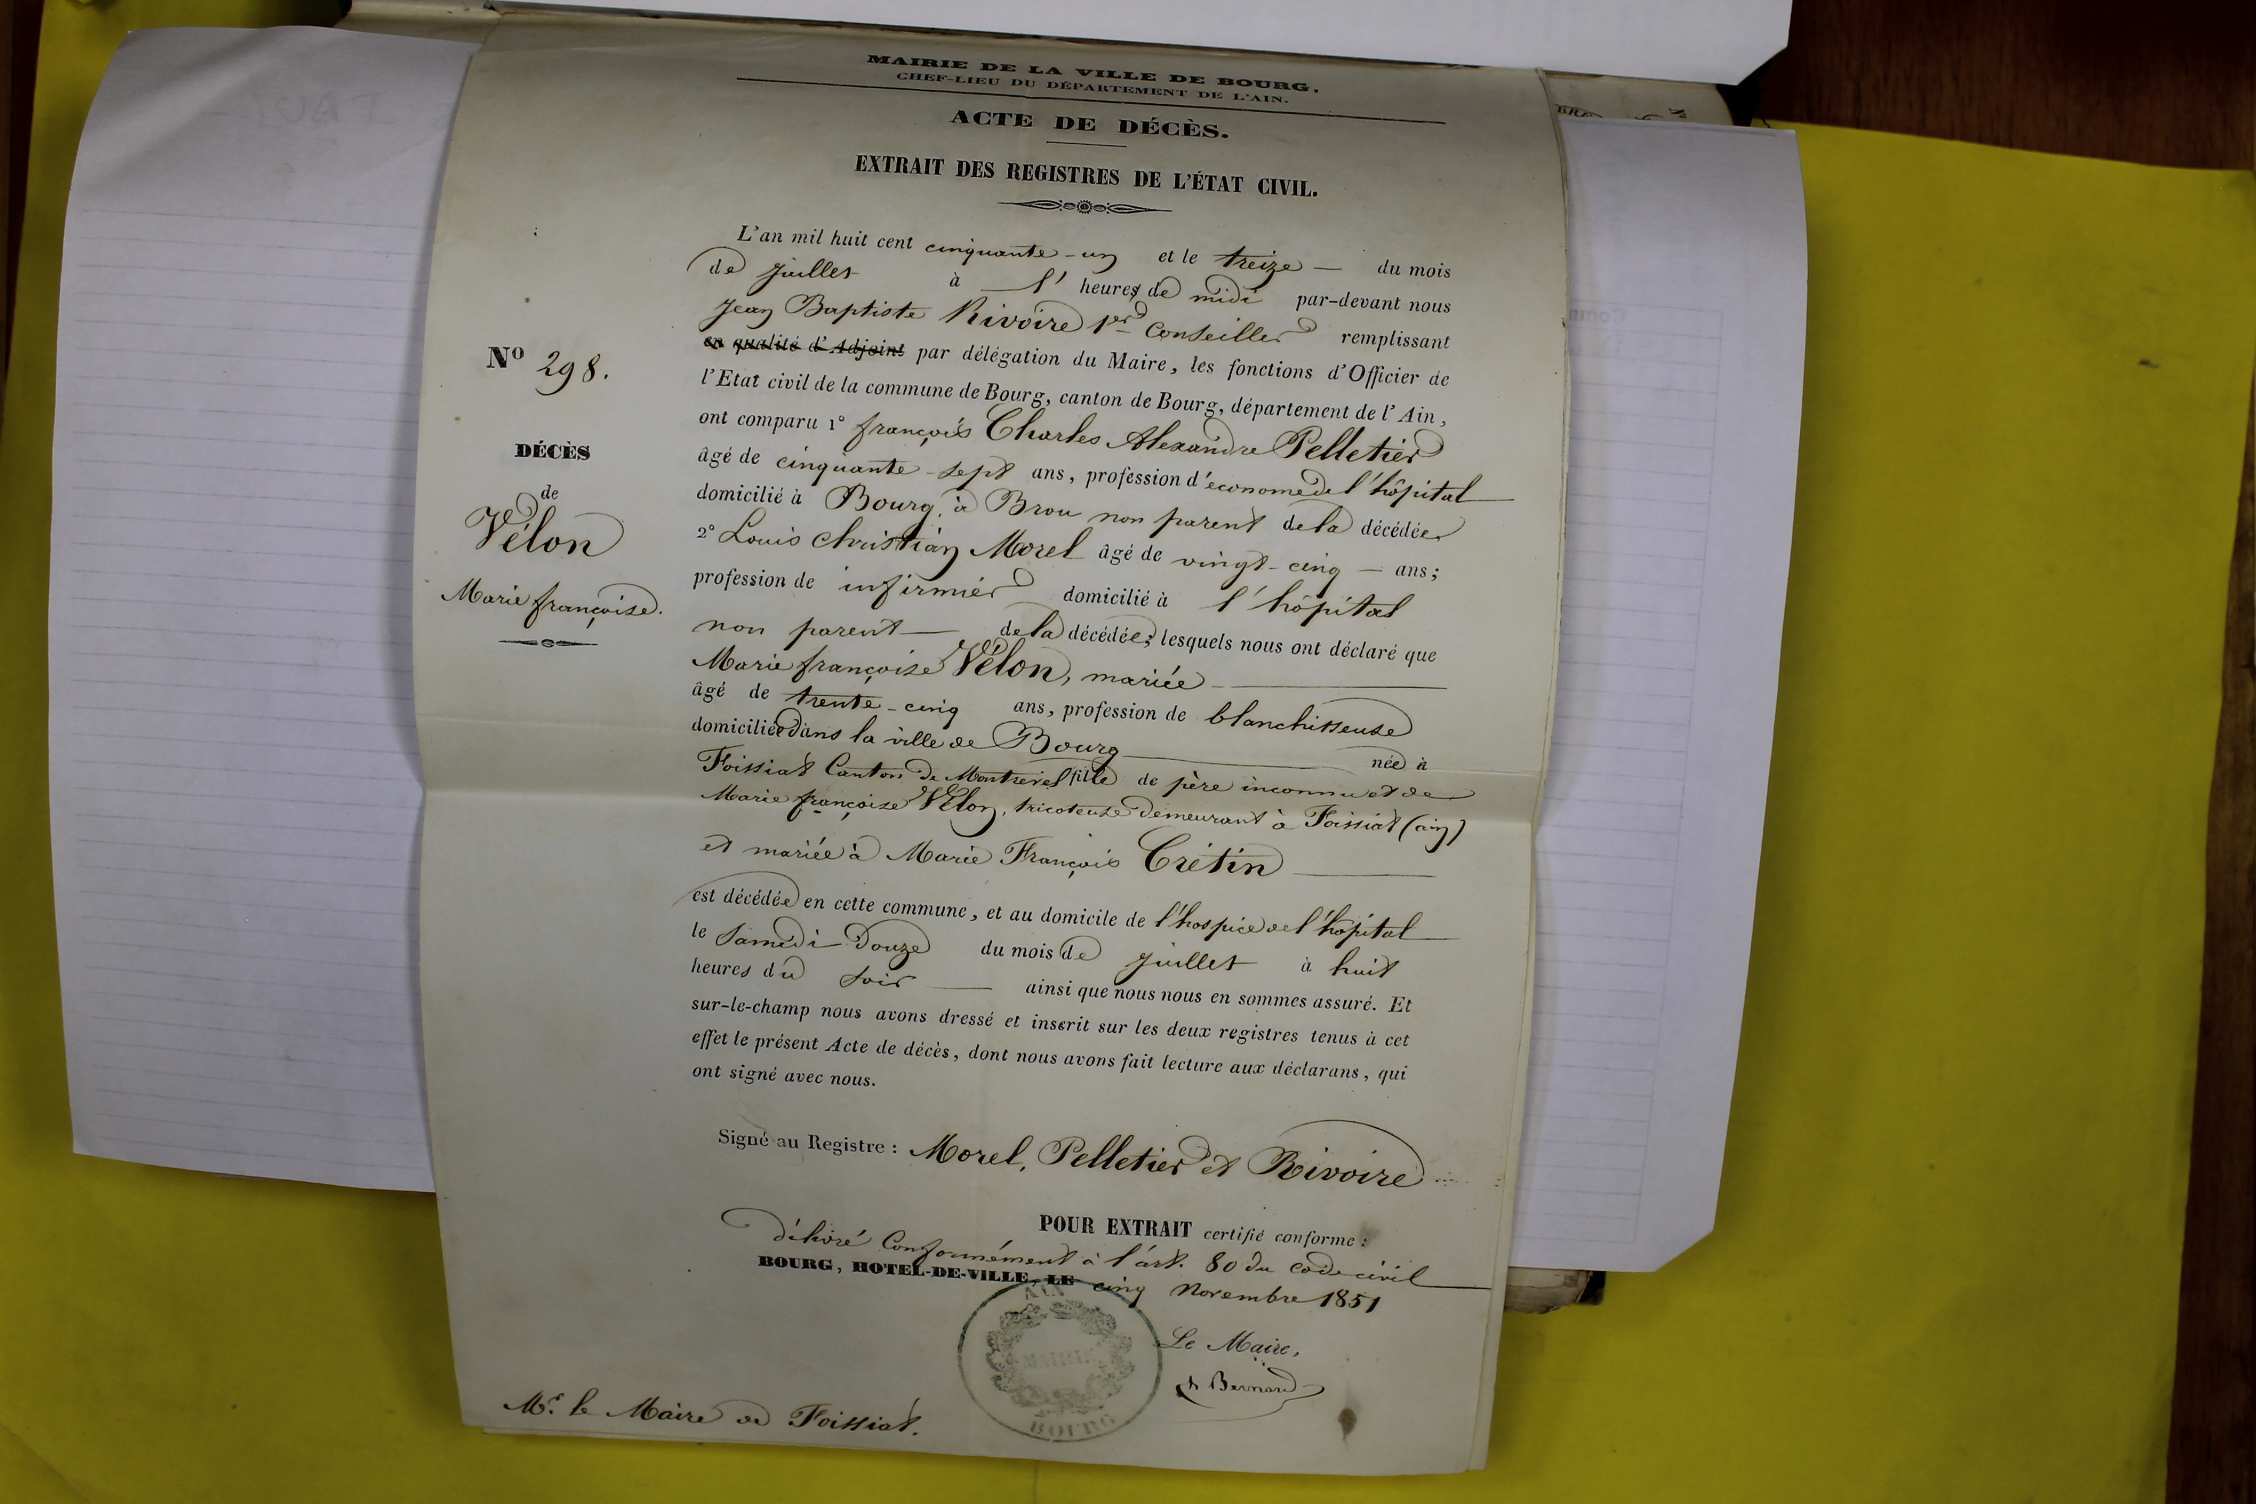 MAIRIE DE LA VILLE DE BOURG,
CHEF-LIEU DU DÉPARTEMENT DE L'AIN.
ACTE DE DÉCÈS.
EXTRAIT DES REGISTRES DE L'ÉTAT CIVIL.
N° 298.
DÉCÈS
de
Vélon
Marie françoise.
L'an mil huit cent cinquante-un et le treize — du mois
de juillet à l' heures de midi par-devant nous
Jean Baptiste Rivoire 1er Conseiller remplissant
en qualité d'Adjoint par délégation du Maire, les fonctions d'Officier de
l'Etat civil de la commune de Bourg, canton de Bourg, département de l'Ain,
ont comparu 1° françois Charles Alexandre Pelletier
âgé de cinquante-sept ans, profession d'économe de l'hôpital
domicilié à Bourg, à Brou non parent de la décédée
2° Louis Christian Morel âgé de vingt-cinq — ans;
profession de infirmier domicilié à l'hôpital
non parent — de la décédée; lesquels nous ont déclaré que
Marie françoise Vélon, mariée
âgé de trente-cinq ans, profession de blanchisseuse
domiciliée dans la ville de Bourg née à
Foissiat Canton de Montrevel fille de père inconnu et de
Marie françoise Vélon, tricoteuse demeurant à Foissiat (ain)
et mariée à Marie François Crétin
est décédée en cette commune, et au domicile de l'hospice de l'hôpital
le Samedi Douze du mois de juillet à huit
heures du soir — ainsi que nous nous en sommes assuré. Et
sur-le-champ nous avons dressé et inscrit sur les deux registres tenus à cet
effet le présent Acte de décès, dont nous avons fait lecture aux déclarans, qui
ont signé avec nous.
Signé au Registre : Morel, Pelletier et Rivoire
POUR EXTRAIT certifié conforme :
délivré Conformément à l'art. 80 du code civil
BOURG, HOTEL-DE-VILLE, LE cinq Novembre 1851
AIN
MAIRIE
BOURG
Le Maire,
Bernard
Mr. le Maire de Foissiat.